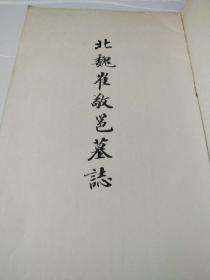 北魏崔敬邕墓誌